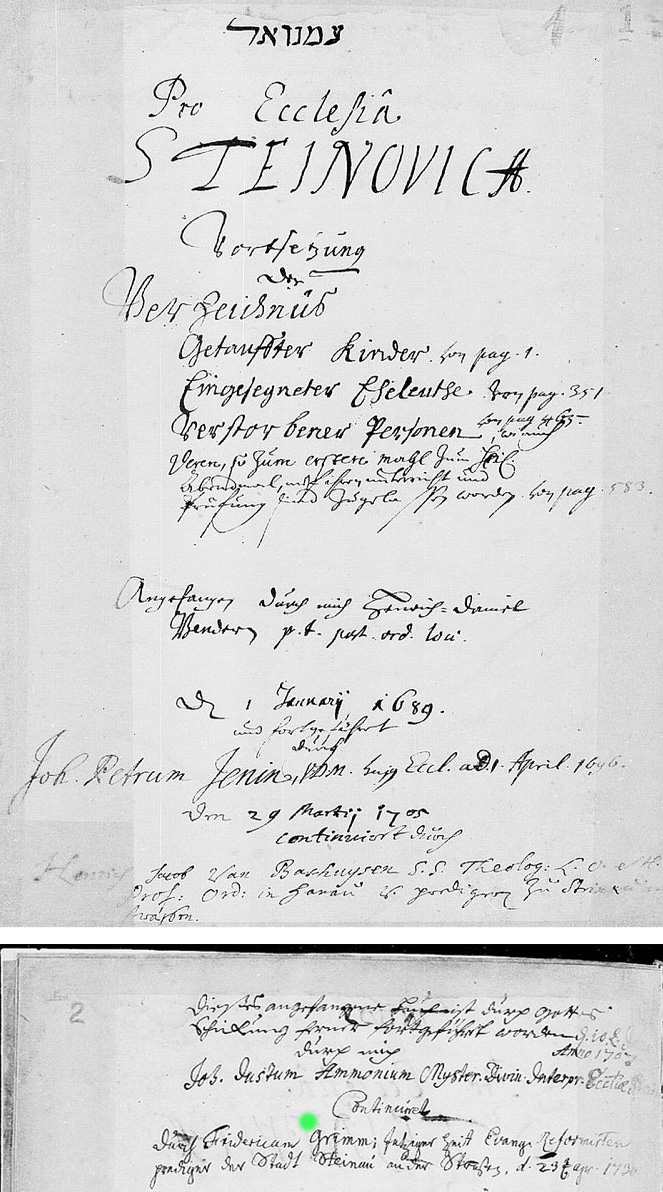 עמנואל
1 1
Pro Ecclesiâ
STEINOVICA.
Vortsetzung
der
Verzeichnüs
Getauffter Kinder. von pag. 1.
Eingesegneter Eheleuthe. von pag. 351
Verstorbener Personen von pag 465. wie auch
Deren, so zum ersten mahl zum Heil.
Abendmal, nach ihrem unterricht und
Prüfung sind zugelassen worden. von pag. 583.
Angefangen durch mich Henrich-Daniel
p. t. past. ord. loci.
Den 1 Januarij 1689.
und fortgeführt
durch
Joh. Petrum Jenin, VDM. hujus Eccl. ad 1. April. 1696.
Den 29 Martij 1705
continuiert durch
Henrich Jacob Van Bashuysen S.S. Theolog: L. O.
Prof: Ord: in Hanau prediger zu Steinau
2
Dieses angefangene ist durch Gottes
Schickung ferner fortgeführt worden
durch mich Anno 1707
Joh. Justum Ammonium Myster. Divin. Interpr. Eccles
Continuiret
durch Fridericum Grimm; jetziger Zeit Evang. Reformirten
prediger der Stadt Steinau an der Straßen, d. 23 Apr. 1730